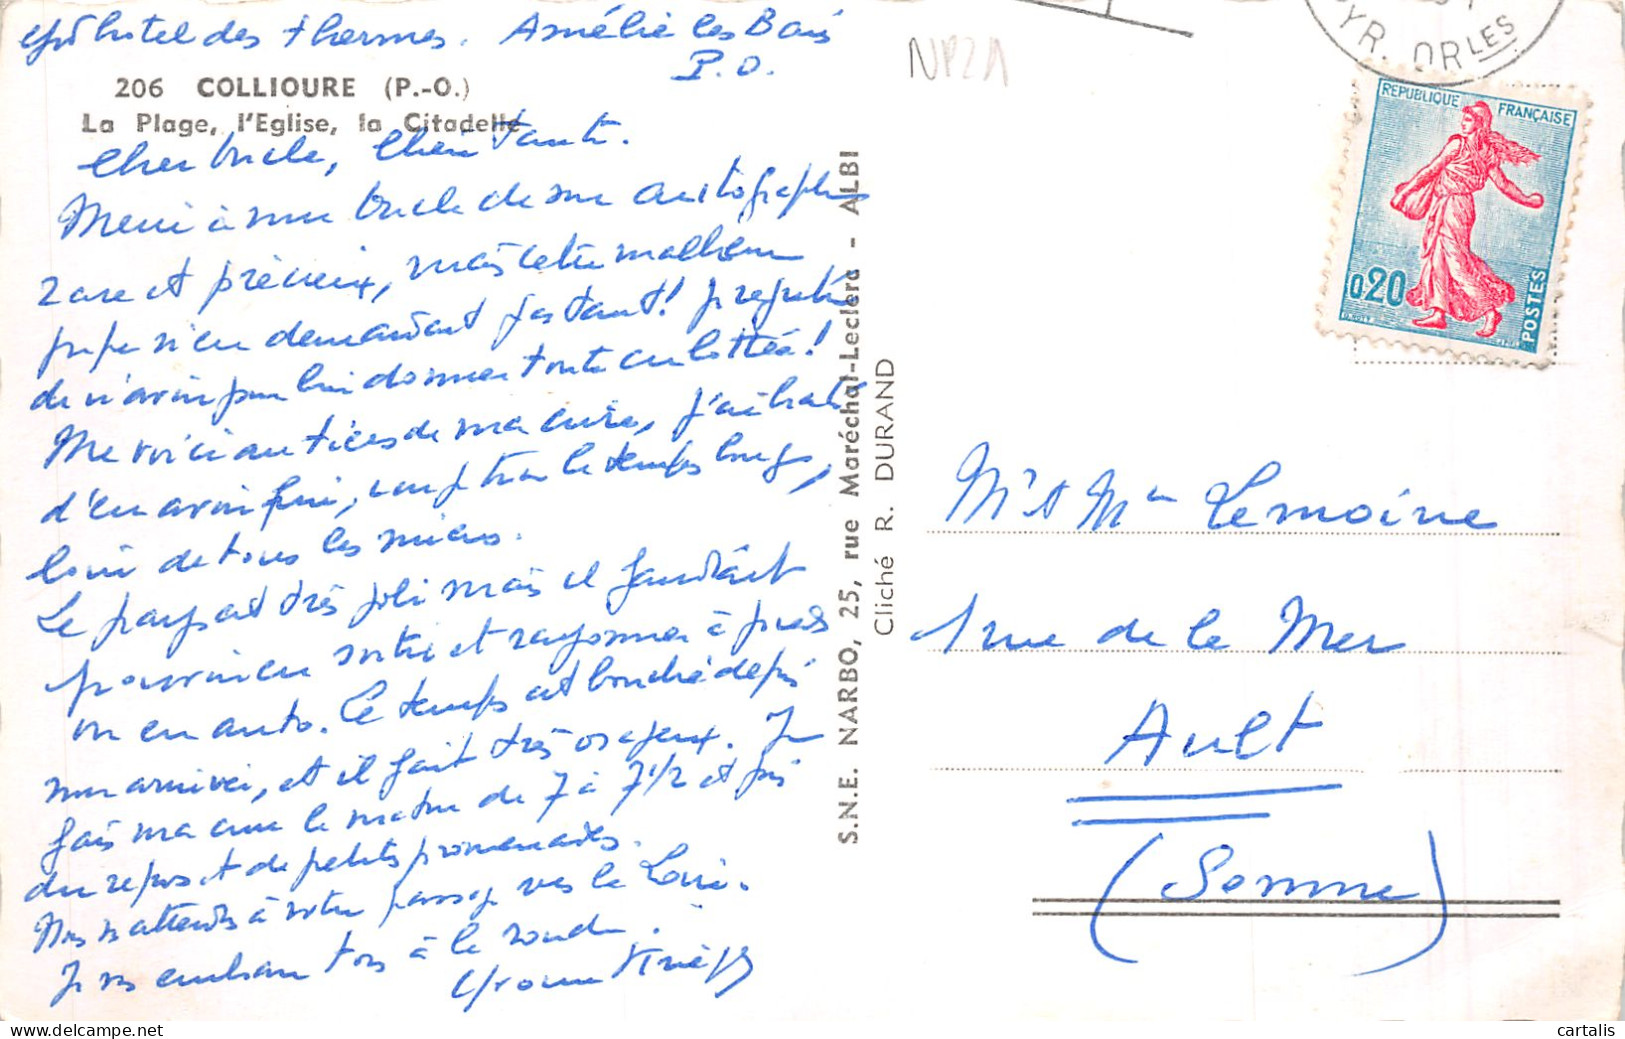 hôtel des thermes. Amélie les Bains
P.O.
206 COLLIOURE (P.-O.)
La Plage, l'Eglise, la Citadelle
Cher Oncle, Chère Tante.
Merci à mon Oncle de son autographe
rare et précieux, mais cette malheur
demandant tant! je regrette
de n'avoir pu lui donner toute culottée!
Me voici au tiers de ma cure, j'ai hâte
d'en avoir fini, trouve le temps long,
loin de tous les miens.
Le pays est très joli mais il faudrait
pouvoir sortir et rayonner à pieds
ou en auto. Le temps est bouché depuis
mon arrivée, et il fait très orageux. Je
fais ma cure le matin de 7 à 7 1/2 et puis
du repos et de petits promenades.
Nous vs attends à votre passage vers la Loire.
Je vs embrasse tous à la ronde.
Yvonne
S.N.E. NARBO, 25, rue Maréchal-Leclerc - ALBI
Cliché R. DURAND
NP21
PYR. ORLES
REPUBLIQUE FRANÇAISE
0,20
POSTES
Mr et Mme Lemoine
1 rue de la Mer
Ault
(Somme)
cartalis
www.delcampe.net